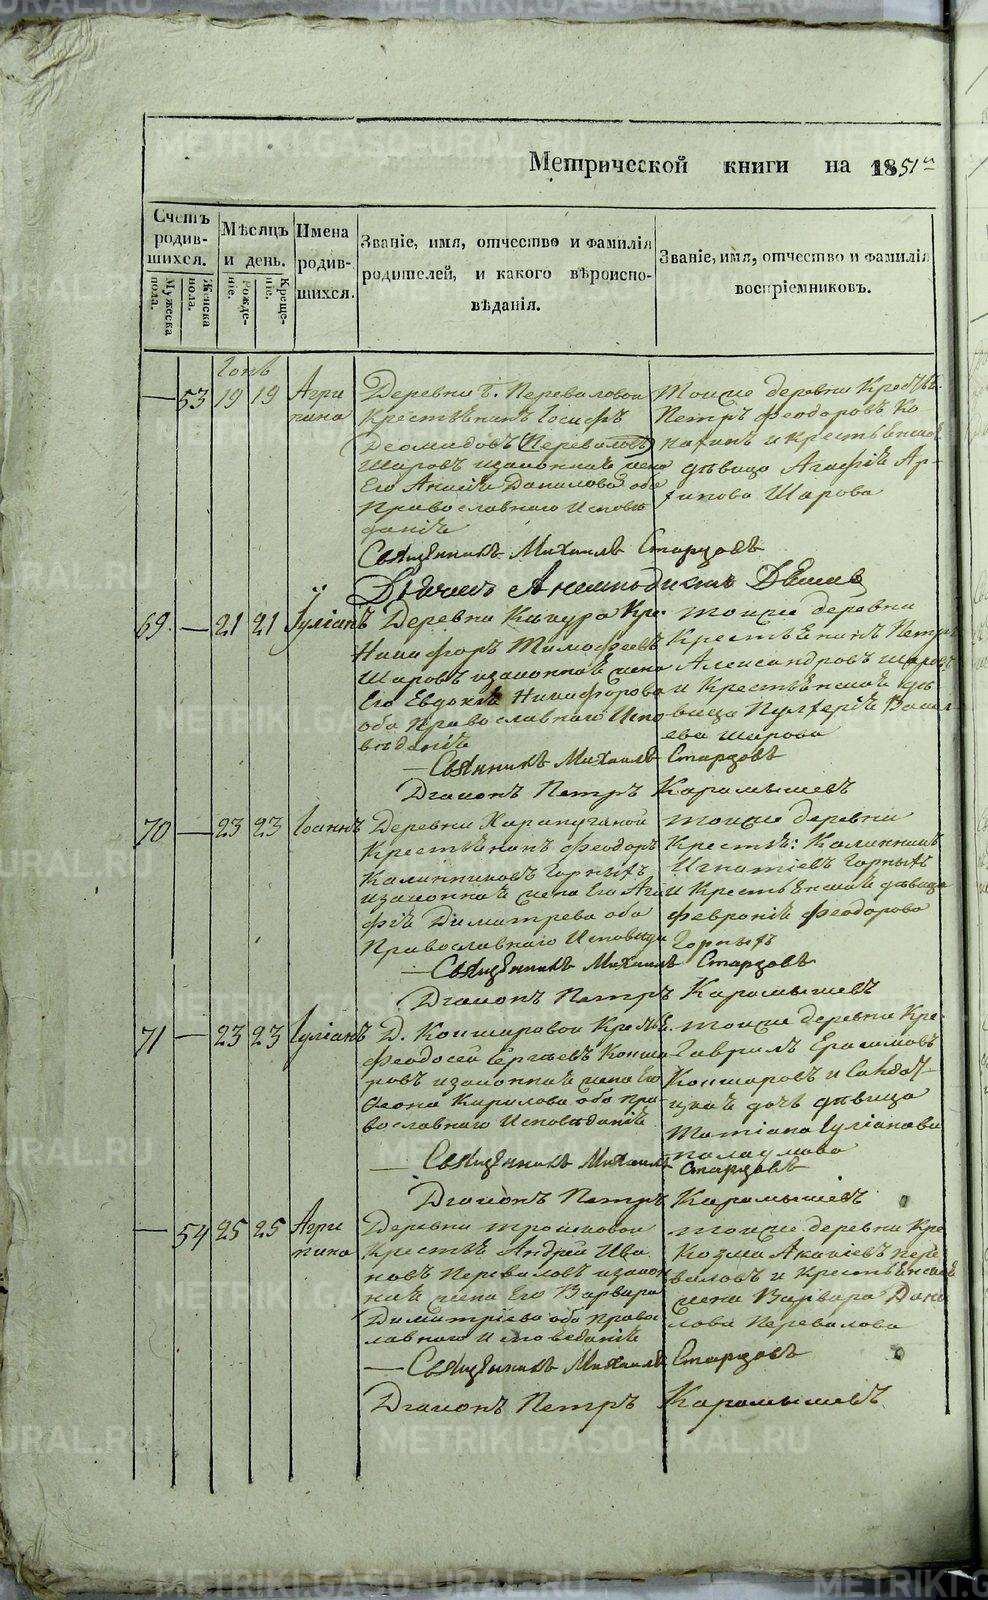 Метрической книги на 1851й
Счетъ родив-шихся.
Мужеска пола.
Женска пола.
Мѣсяцъ и день.
Рожде-ніе.
Креще-ніе.
Имена родив-шихся.
Званіе, имя, отчество и фамилія
родителей, и какого вѣроиспо-
вѣданія.
Званіе, имя, отчество и фамилія
воспріемниковъ.
53 19 19 Агри
пина
Деревни Б. Перваловой
Крестьянинъ Іосифъ
Деомидовъ (Перваловъ)
Шаровъ изаконная жена
Его Данилова оба
Православнаго Исповѣ
данія
Тойже деревни
Петръ Феодоровъ Ко
и крестьянская
дѣвица Агафія Ар-
Шарова
Священникъ Михаилъ Старцовъ
69. 21 21 Іуліанъ
Деревни Кре.
Никифоръ Тимофеевъ
Шаровъ изаконная жена
Его Евдокія Никифорова
оба Православнаго Испо
вѣданія
тойже деревни
Крестьянинъ Петръ
Александровъ Шаровъ
и Крестьянская дѣ
вица Пулхерія Васил
ева Шарова
Священникъ Михаилъ Старцовъ
Діаконъ Петръ Карамышевъ
70 23 23 Іоаннъ
Деревни
Крестьянинъ Феодоръ
Калинниковъ Горныхъ
изаконная жена Его Ага
фія Димитрева оба
Православнаго Исповѣда
тойже деревни
Крестья: Калинникъ
Игнатіевъ Горныхъ
и Крестьянская дѣвица
Февронія Феодорова
Горныхъ
Священникъ Михаилъ Старцовъ
Діаконъ Петръ Карамышевъ
71 23 23 Іуліанъ
Д. Кошаровой
Феодосей Сергѣевъ Коша
ровъ изаконная жена Его
Кирилова оба пра-
вославнаго Исповѣданія
тойже деревни Кре
Гаврилъ Ерасимовъ
Кошаровъ и
дочь дѣвица
Татіана Іуліанова
Священникъ Михаилъ Старцовъ
Діаконъ Петръ Карамышевъ
54 25 25 Агри
пина
Деревни
Крестья Андрей Ива
новъ Перваловъ изакон
ная жена Его Варвара
Димитріева оба Право
славнаго Исповеданія
тойже деревни Кре
Козма Акакіевъ Пере
валовъ и Крестьянская
жена Варвара Дани
лова Перевалова
Священникъ Михаилъ Старцовъ
Діаконъ Петръ Карамышевъ
METRIKI.GASO-URAL.RU